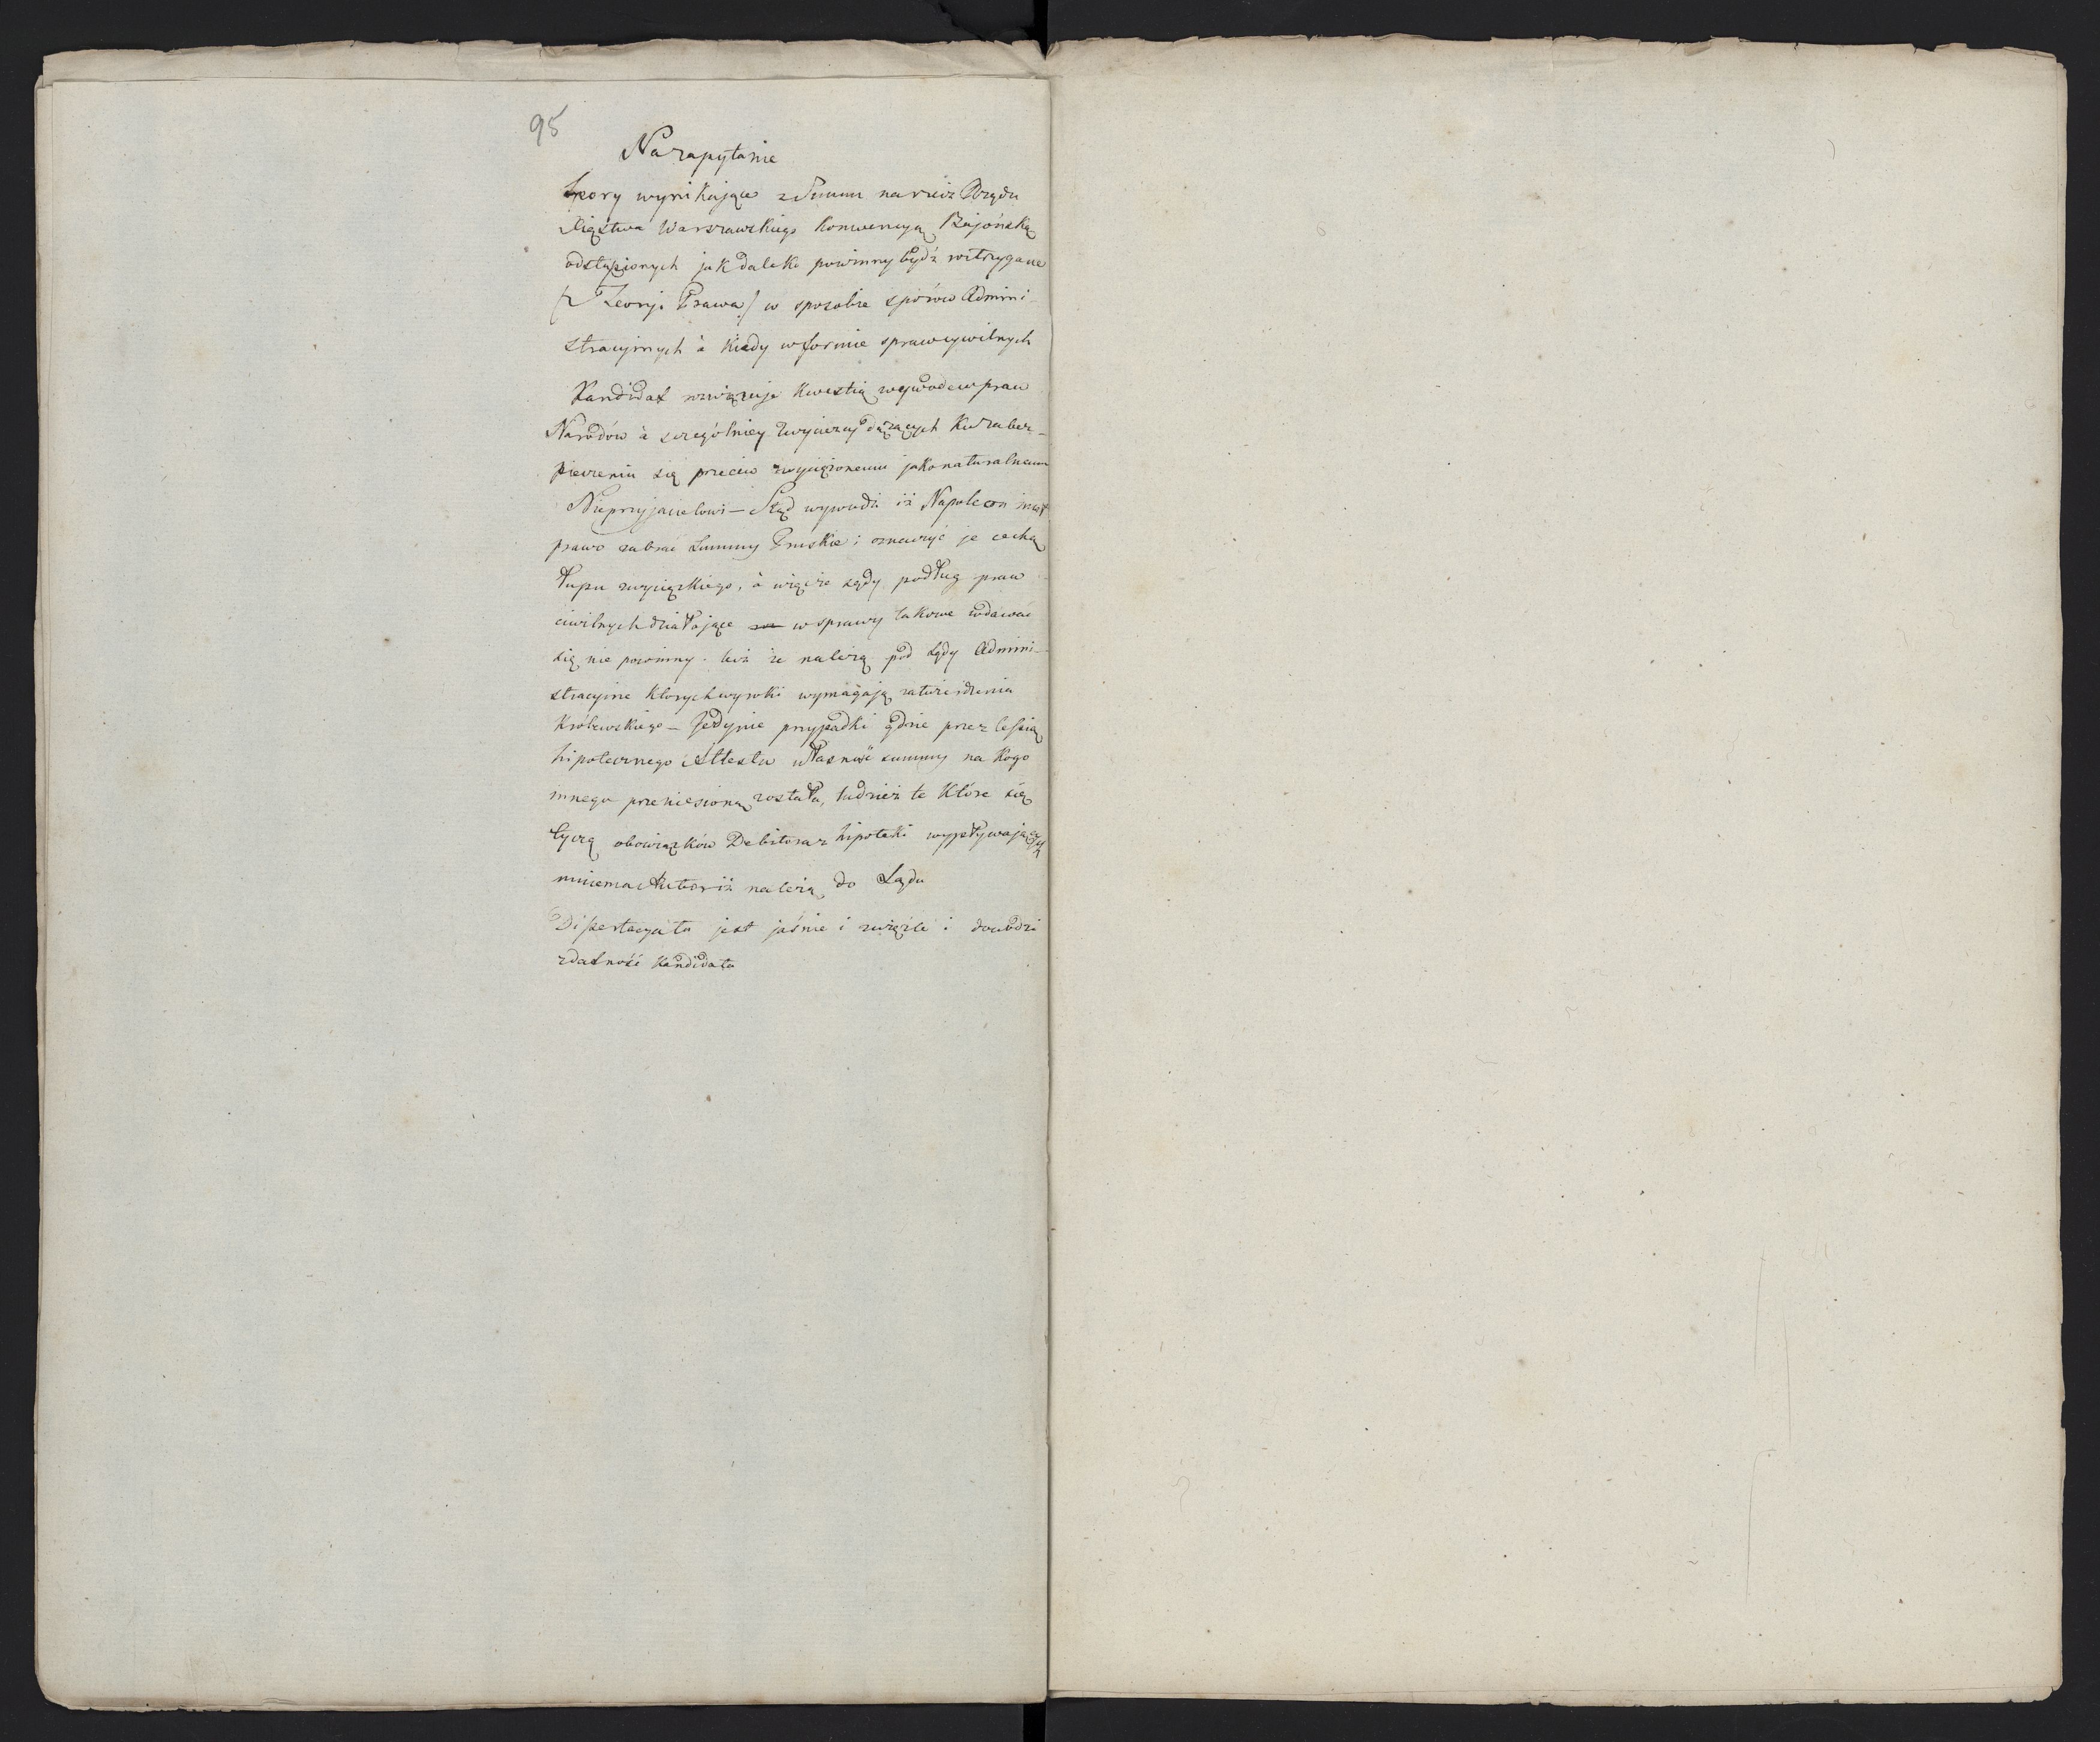 95
Na zapytanie
Spory wynikające z Summ na rzecz Rządu
Xięstwa Warszawskiego Konwencyą Bajońską
odstąpionych jak daleko powinny bydź roztrzygane
(z Teoryi Prawa) w sposobie sporów Admini-
stracyjnych à kiedy w formie spraw cywilnych
Kandidat rozwięzuje kwestią wywodem praw
Narodów à szczególniey zwycięzcy dążących ku zabez-
pieczeniu się przeciw zwyciężonemu jako naturalnemu
Nieprzyjacielowi – Ztąd wywodzi iż Napoleon miał
prawo zabrać Summy Pruskie i oznaczyć je cechą
łupu zwycięzkiego, à więc że sądy podług praw
ciwilnych działające w sprawy takowe wdawać
się nie powinny. lecz że należą pod Sądy Admini-
stracyjne których wyroki wymagają zatwierdzenia
Królewskiego – Jedynie przypadki gdzie przez Cessią
hipotecznego Attestu własność summy na kogo
innego przeniesioną została, tudzież te które się
tyczą obowiązków Debitora z hipoteki wypływających
mniema Autor iż należą do Sądu
Dissertacya ta jest jaśnie i zwięźle i dowodzi
zdatność Kandidata